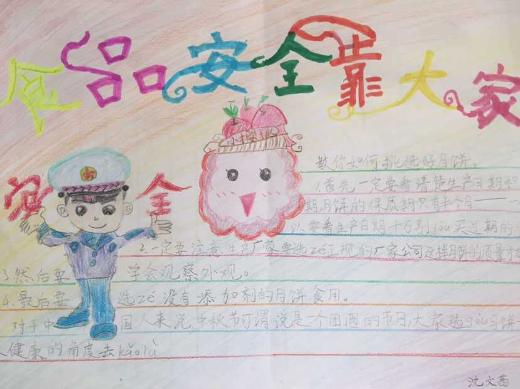 食品安全靠大家
安全
教你如何挑选好月饼。
1.首先一定要看清楚生产日期和
期月饼的保质期只有1个月——
以要看生产日期千万别too买过期的
2.一定要注意生产厂家要选zé正规的厂家公司这样月饼的质量
3.然后要学会观察外观。
4.最后要选zé没有添加剂的月饼食用。
对于中国人来说中秋节可谓说是一个团圆的节日,大家
健康的角度去kǎolǜ